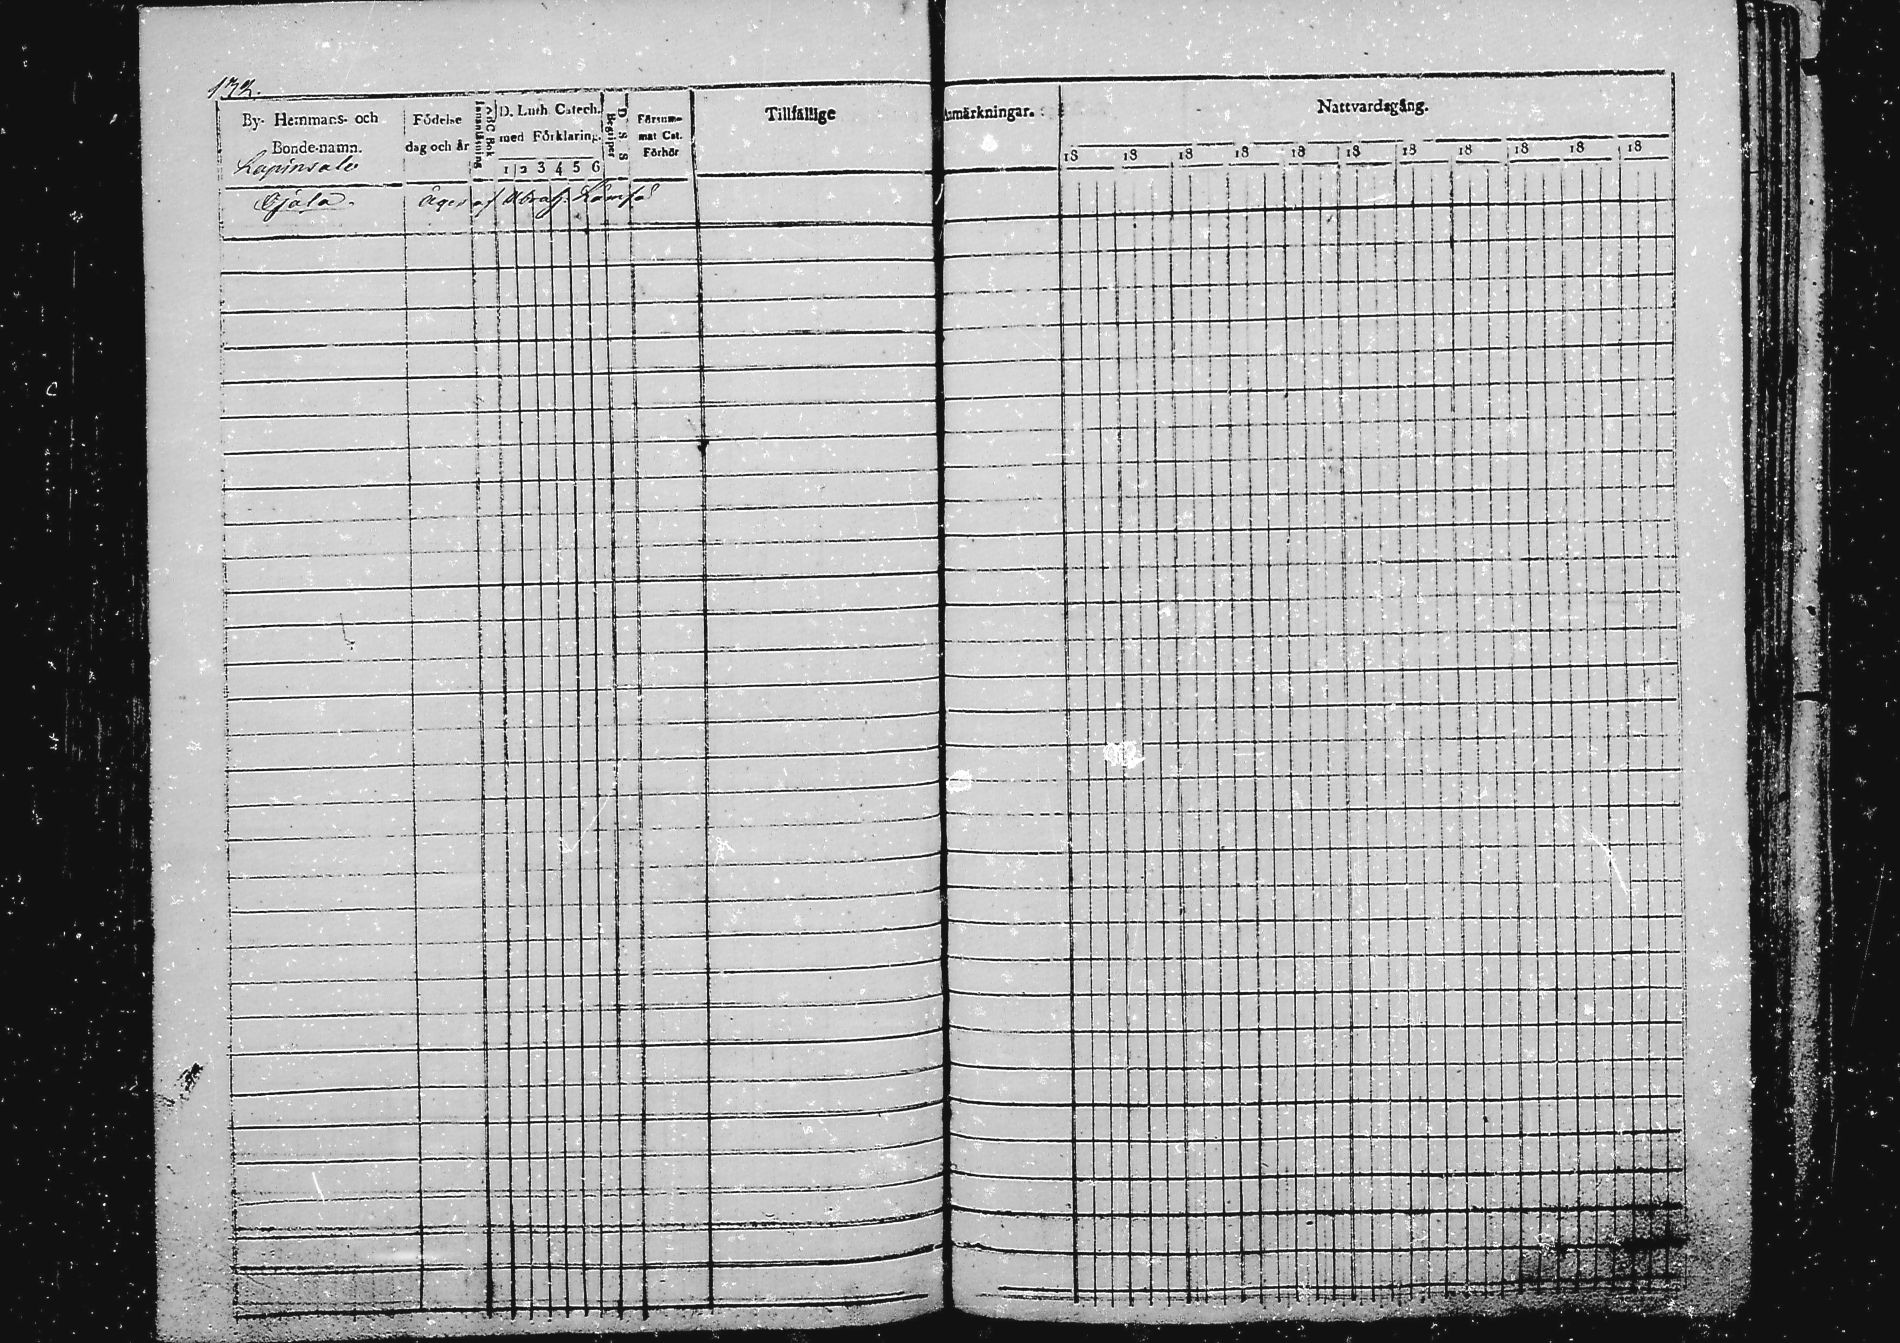 172.
By- Hemmans- och Bonde-namn.
Födelse dag och år
Innanläsning
ABC Bok
D. Luth Catech. med Förklaring.
1 2 3 4 5 6
Begriper
D. S. S.
Försummat Cat. Förhör
Tillfällige
Anmärkningar.
Nattvardsgång.
18 18 18 18 18 18 18 18 18 18 18
Lapinsalo
Ojala.
äges af Abrah.